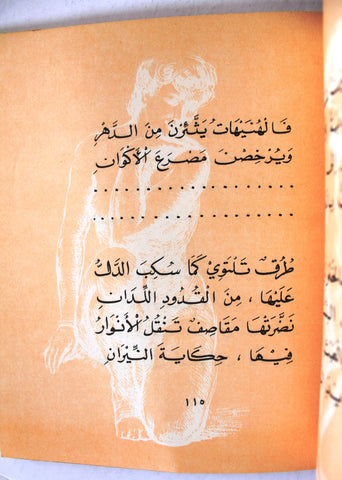 فَالْهُنَيْهَاتُ يَثْأَرْنَ مِنَ الدَّهْرِ
وَيُرْخِصْنَ مَصْرَعَ الْأَكْوَانِ
..................
..................
طُرُقٌ تَلْتَوِي كَمَا سُكِبَ الدَّلُّ
عَلَيْهَا ، مِنَ الْقُدُودِ اللِّدَانِ
نَضَّرَتْهَا مَقَاصِفٌ تَنْقُلُ الْأَنْوَارُ
فِيهَا ، حِكَايَةَ النِّيرَانِ
١١٥